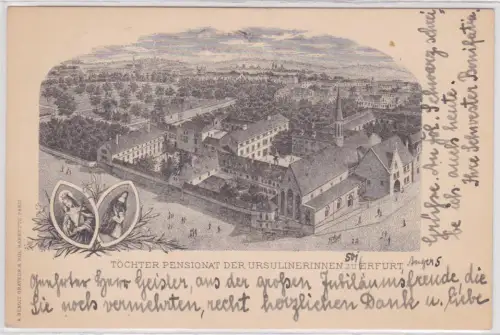 TÖCHTER PENSIONAT DER URSULINERINNEN ZU ERFURT
Anger 5
Geehrter Herr Geisler, aus der großen Jubiläumsfreude, die
Sie noch vermehrten, recht herzlichen Dank u. Liebe
Grüße. An Frl. Schwarz schrei-
be ich auch heute.
Ihre Schwester Bonifatia